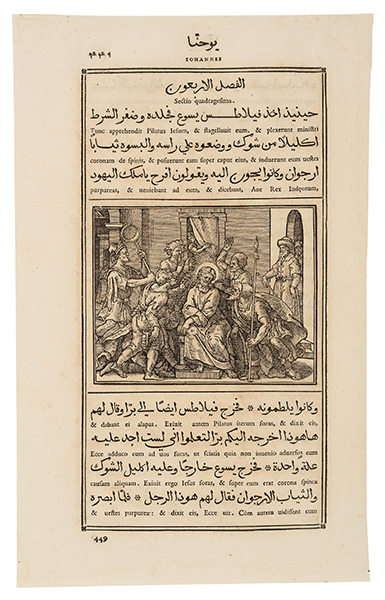 يوحنّا
IOHANNIS
الفصل الاربعون
Sectio quadragesima.
حينيذٍ اخذ فيلاطس يسوع فجلده وضفر الشرط
Tunc apprehendit Pilatus Iesum, & flagellauit eum. & plexerunt ministri
اكليلاً من شوك ووضعوه على راسه والبسوه ثياباً
coronam de spinis, & posuerunt eam super caput eius, & induerunt eum uestes
ارجوان وكانوا يجون اليه ويقولون افرح يا ملك اليهود
purpureas, & ueniebant ad eum, & dicebant, Aue Rex Iudęorum,
وكانوا يلطمونه * فخرج فيلاطس ايضًا الى برّا وقال لهم
& dabant ei alapas. Exiuit autem Pilatus iterum foras, & dixit eis,
هاهوذا اخرجه اليكم برّا لتعلموا اني لست اجد عليه
Ecce adduco eum ad uos foras, ut sciatis quia non inuenio aduersus eum
علّة واحدة * فخرج يسوع خارجًا وعليه اكليل الشوك
causam aliquam. Exiuit ergo Iesus foras, & super eum erat corona spinea
والثياب الارجوان فقال لهم هوذا الرجل * فلمّا ابصره
& uestes purpureę: & dixit eis, Ecce uir. Cùm autem uidissent eum
449